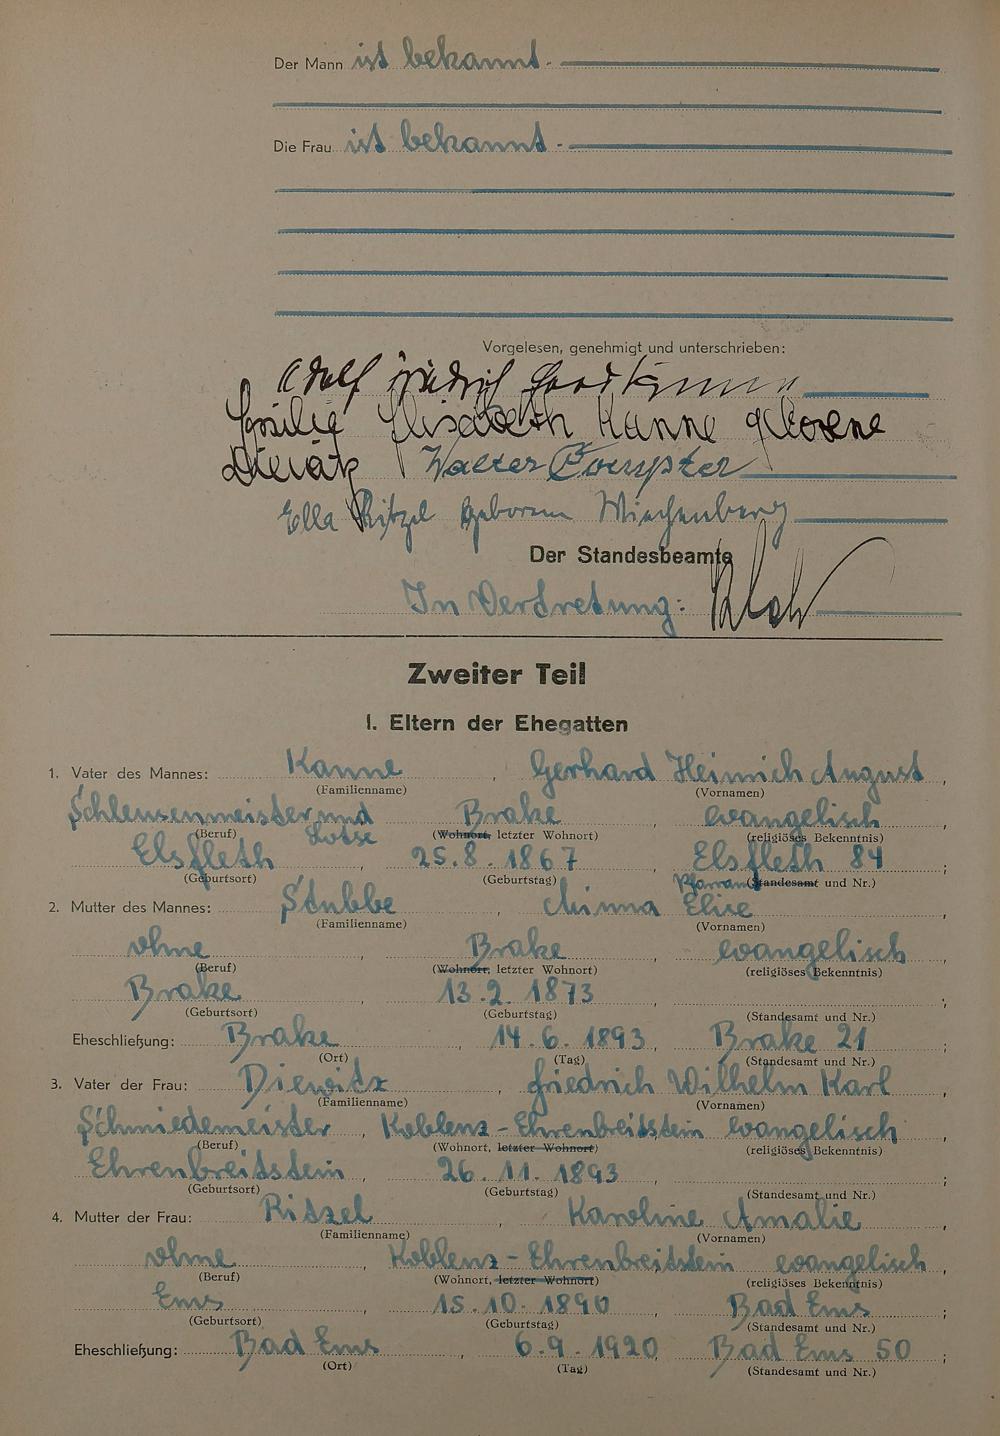 Der Mann ist bekannt.
Die Frau ist bekannt.
Vorgelesen, genehmigt und unterschrieben:
Adolf
Elisabeth Kanne geborene
Walter
Ella Ritzel geboren
Der Standesbeamte
In Vertretung:
Zweiter Teil
I. Eltern der Ehegatten
1. Vater des Mannes: Kanne, Gerhard Heinrich August,
(Familienname) (Vornamen)
Schleusenmeister und Brake, evangelisch,
(Beruf) Lotse (Wohnort, letzter Wohnort) (religiöses Bekenntnis)
Elsfleth 25.8.1867 Elsfleth 84;
(Geburtsort) (Geburtstag) Pfarramt (Standesamt und Nr.)
2. Mutter des Mannes: Stubbe, Minna Elise,
(Familienname) (Vornamen)
ohne, Brake, evangelisch,
(Beruf) (Wohnort, letzter Wohnort) (religiöses Bekenntnis)
Brake, 13.2.1873, ;
(Geburtsort) (Geburtstag) (Standesamt und Nr.)
Eheschließung: Brake, 14.6.1893, Brake 21;
(Ort) (Tag) (Standesamt und Nr.)
3. Vater der Frau: Diewitz, Friedrich Wilhelm Karl,
(Familienname) (Vornamen)
Schmiedemeister, Koblenz-Ehrenbreitstein evangelisch,
(Beruf) (Wohnort, letzter Wohnort) (religiöses Bekenntnis)
Ehrenbreitstein, 26.11.1893 ;
(Geburtsort) (Geburtstag) (Standesamt und Nr.)
4. Mutter der Frau: Ritzel, Karoline Amalie,
(Familienname) (Vornamen)
ohne, Koblenz-Ehrenbreitstein evangelisch,
(Beruf) (Wohnort, letzter Wohnort) (religiöses Bekenntnis)
Ems, 15.10.1890, Bad Ems;
(Geburtsort) (Geburtstag) (Standesamt und Nr.)
Eheschließung: Bad Ems, 6.9.1920, Bad Ems 50;
(Ort) (Tag) (Standesamt und Nr.)